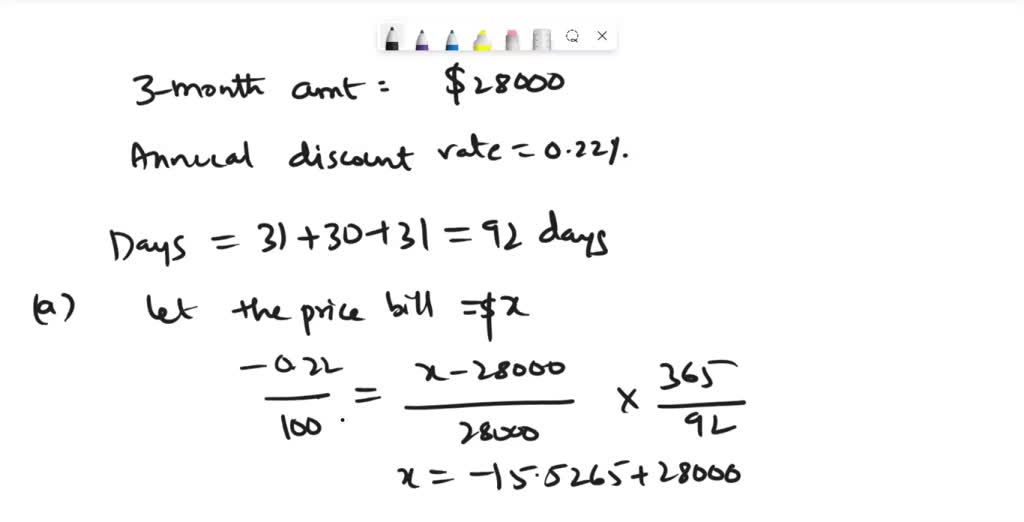 3-month amt = $28000
Annual discount rate = 0.22%.
Days = 31+30+31 = 92 days
(a) let the price bill = $x
-0.22/100 = x-28000/28000 × 365/92
x = -15.5265+28000